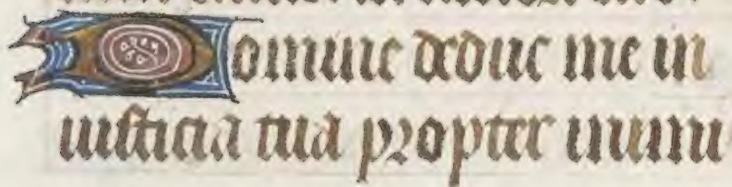 Domine deduc me in
iusticia tua propter inimi